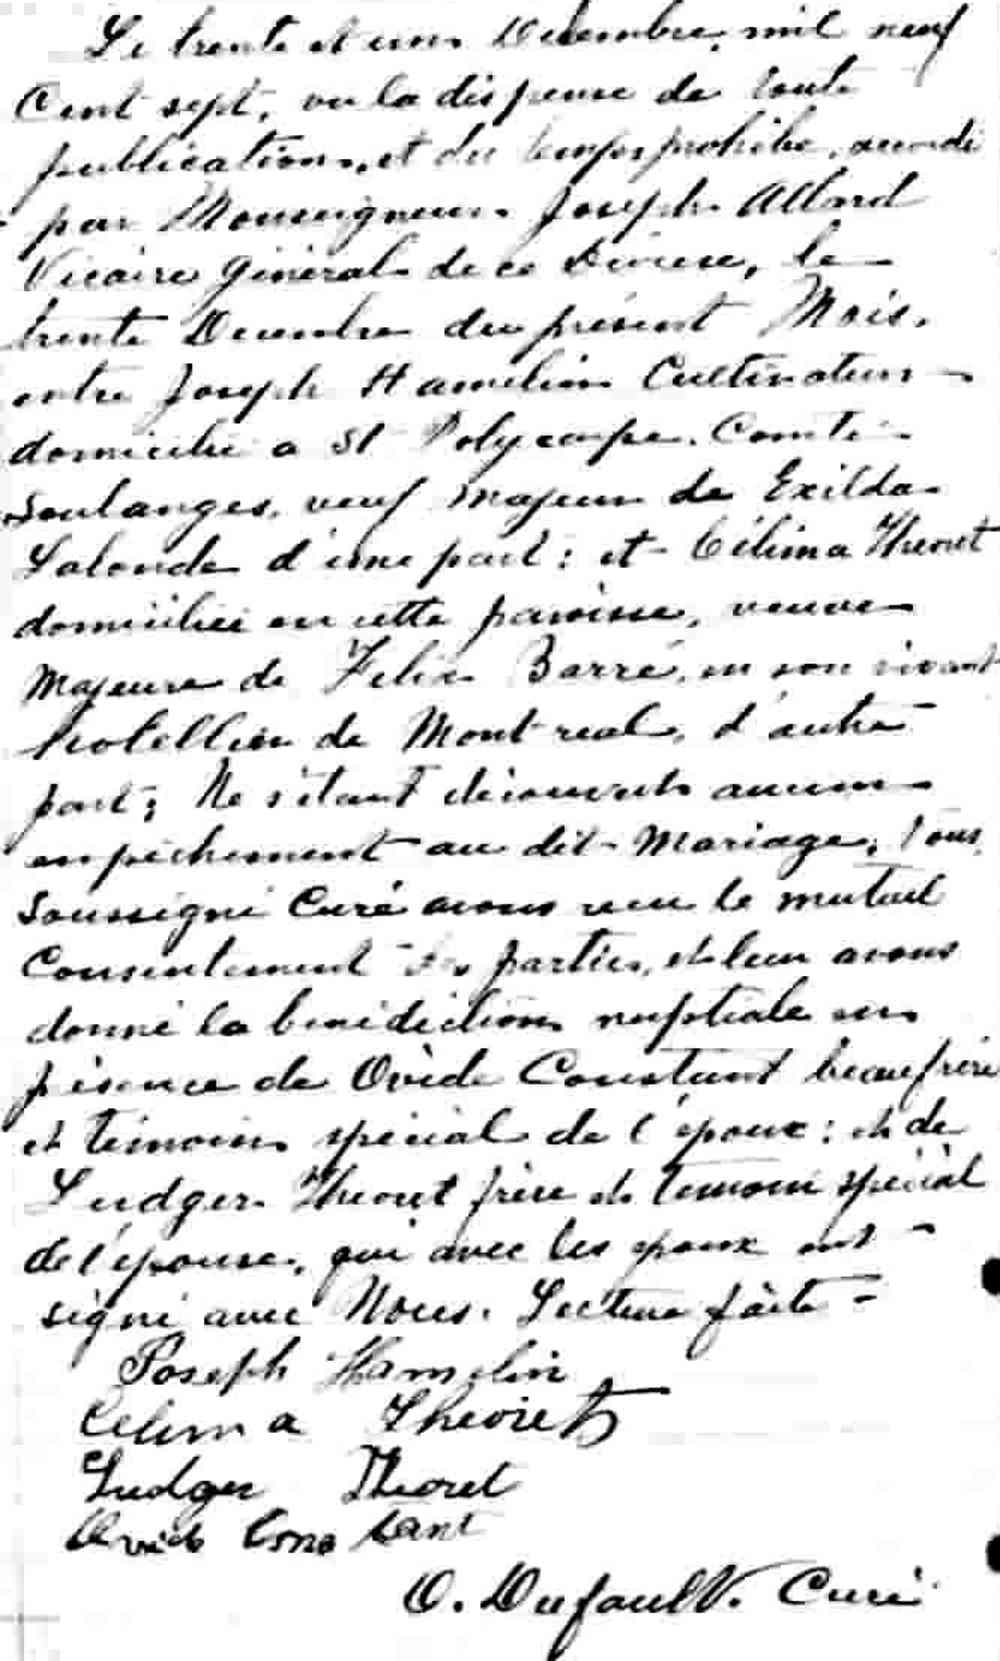 Le trente et un Decembre, mil neuf
Cent sept, vu la dispense de toute
publication, et du temps prohibé, accordé
par Monseigneur Joseph Allard
Vicaire Général de ce Diocese, le
trente Decembre du présent Mois,
entre Joseph Hamelin Cultivateur
domicilié a St Polycarpe, Comté
Soulanges, veuf majeur de Exilda
Lalonde d'une part: et Célima Theoret
domiciliée en cette paroisse, veuve
Majeure de Felix Barré, en son vivant
hotellier de Montreal, d'autre
part; Ne s'étant découvert aucun
empêchement au dit Mariage, Nous
Soussigné Curé avons reçu le mutuel
Consentement des parties, et leur avons
donné la benédiction nuptiale en
présence de Ovide Constant beaufrère
et témoin spécial de l'époux: et de
Ludger Theoret frère et temoin spécial
de l'épouse, qui avec les époux ont
signé avec Nous. Lecture faite
Joseph Hamelin
Celima Theoret
Ludger Theoret
Ovide Constant
O. Dufault. Curé